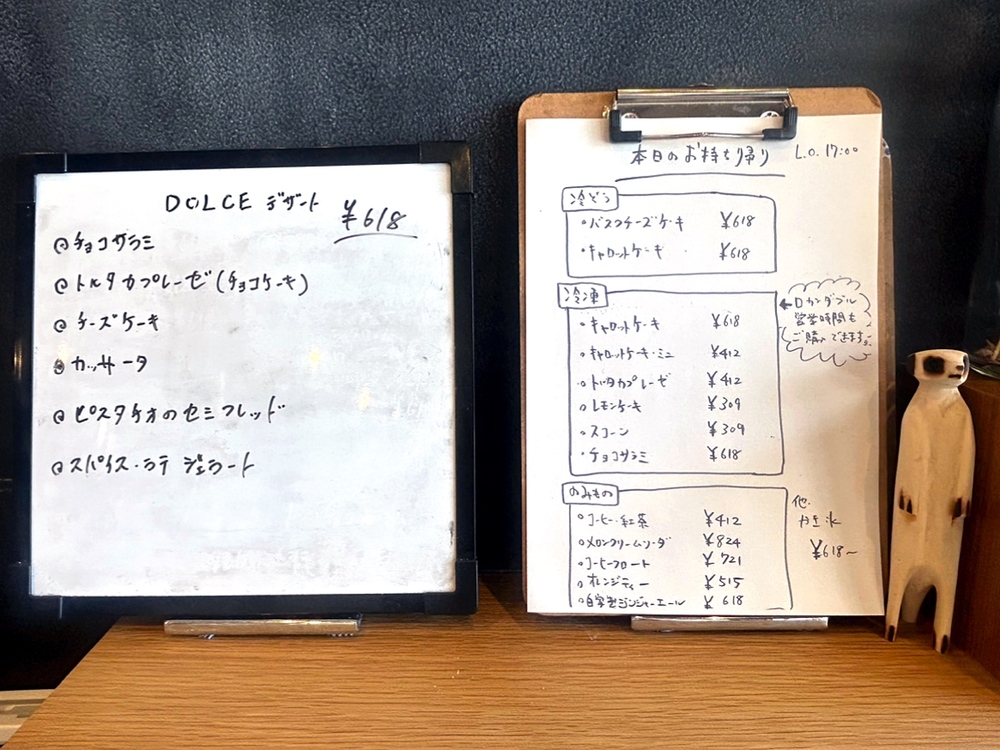 DOLCE デザート ¥618
チョコサラミ
トルタカプレーゼ(チョコケーキ)
チーズケーキ
カッサータ
ピスタチオのセミフレッド
スパイス・ラテ ジェラート
本日のお持ち帰り L.O. 17:00
冷ぞう
・バスクチーズケーキ ¥618
・キャロットケーキ ¥618
冷凍
・キャロットケーキ ¥618
・キャロットケーキ・ミニ ¥412
・トルタカプレーゼ ¥412
・レモンケーキ ¥309
・スコーン ¥309
・チョコサラミ ¥618
←ロカンダブル
営業時間も
ご購入できます。
のみもの
・コーヒー・紅茶 ¥412
・メロンクリームソーダ ¥824
・コーヒーフロート ¥721
・オレンジティー ¥515
・自家製ジンジャーエール ¥618
他
かき氷
¥618〜